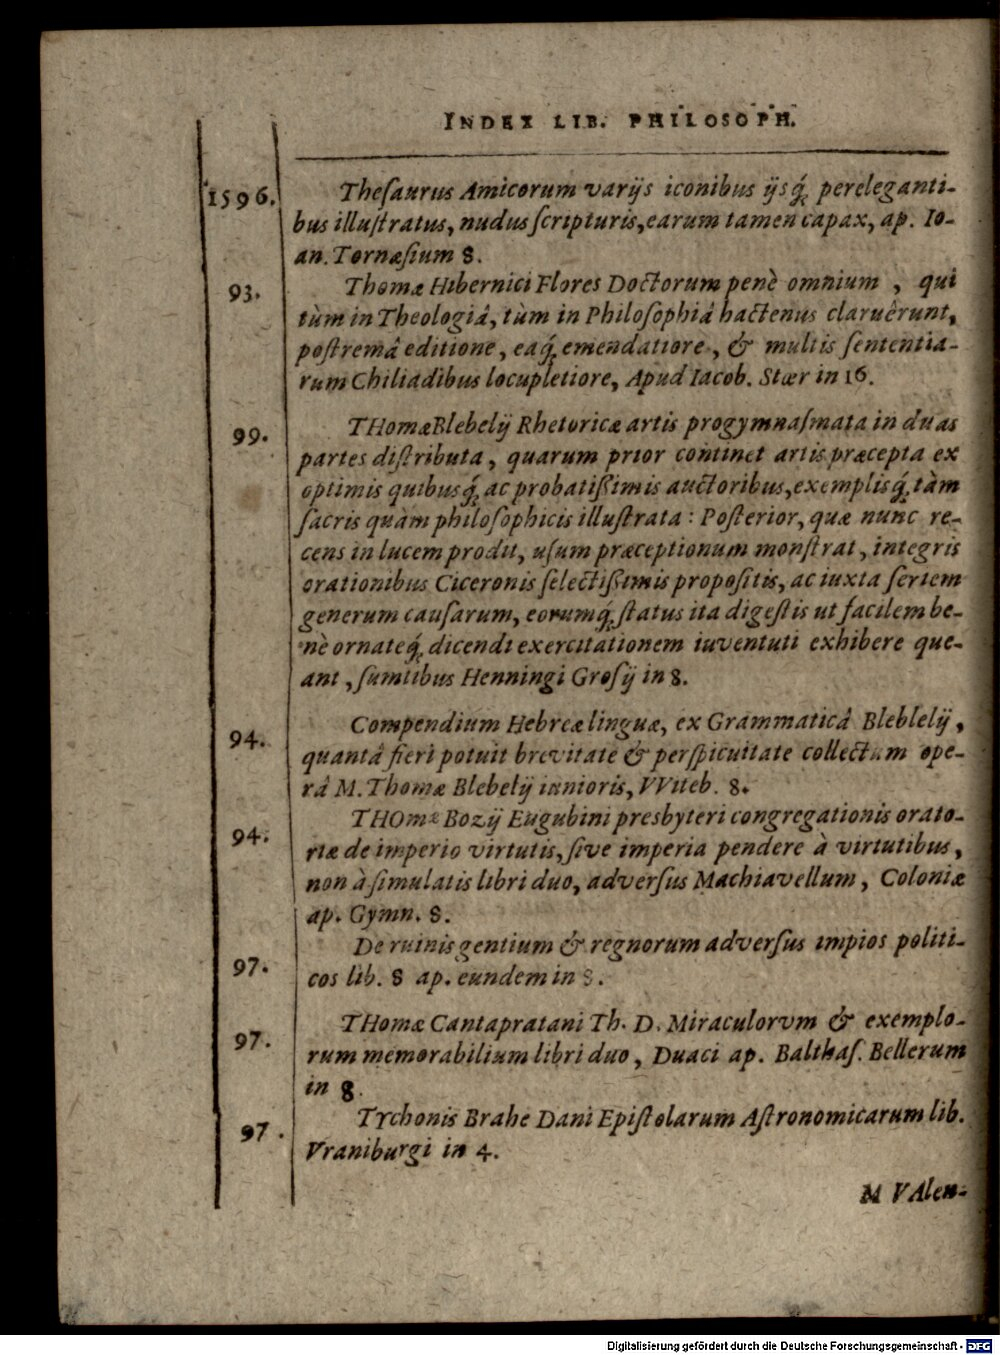 INDEX LIB. PHILOSOPH.
1596. Theſaurus Amicorum varijs iconibus ijsq́; pereleganti-
bus illuſtratus, nudus ſcripturis, earum tamen capax, ap. Io-
an. Tornæſium 8.
93. Thomæ Hibernici Flores Doctorum penè omnium, qui
tùm in Theologiâ, tùm in Philoſophiâ hactenus claruêrunt,
poſtremâ editione, eaq́; emendatiore, & multis ſententia-
rum Chiliadibus locupletiore, Apud Iacob. Stær in 16.
99. THomæ Blebelij Rhetoricæ artis progymnaſmata in duas
partes diſtributa, quarum prior continet artis præcepta ex
optimis quibusq́; ac probatißimis auctoribus, exemplisq́; tàm
ſacris quàm philoſophicis illuſtrata: Poſterior, quæ nunc re-
cens in lucem prodit, uſum præceptionum monſtrat, integris
orationibus Ciceronis ſelectißimis propoſitis, ac iuxta ſeriem
generum cauſarum, eorumq́; ſtatus ita digeſtis ut facilem be-
nè ornateq́; dicendi exercitationem iuventuti exhibere que-
ant, ſumtibus Henningi Groſij in 8.
94. Compendium Hebreæ linguæ, ex Grammaticâ Bleblelij,
quantâ fieri potuit brevitate & perſpicuitate collectum ope-
râ M. Thomæ Blebelij iunioris, VViteb. 8.
94. THOmæ Bozij Eugubini presbyteri congregationis orato-
riæ de imperio virtutis, ſive imperia pendere à virtutibus,
non à ſimulatis libri duo, adverſus Machiavellum, Coloniæ
ap. Gymn. 8.
97. De ruinis gentium & regnorum adverſus impios politi-
cos lib. 8 ap. eundem in 8.
97. THomæ Cantapratani Th. D. Miraculorvm & exemplo-
rum memorabilium libri duo, Duaci ap. Balthaſ. Bellerum
in 8.
97. TYchonis Brahe Dani Epiſtolarum Aſtronomicarum lib.
Vraniburgi in 4.
M VAlen-
Digitalisierung gefördert durch die Deutsche Forschungsgemeinschaft - DFG